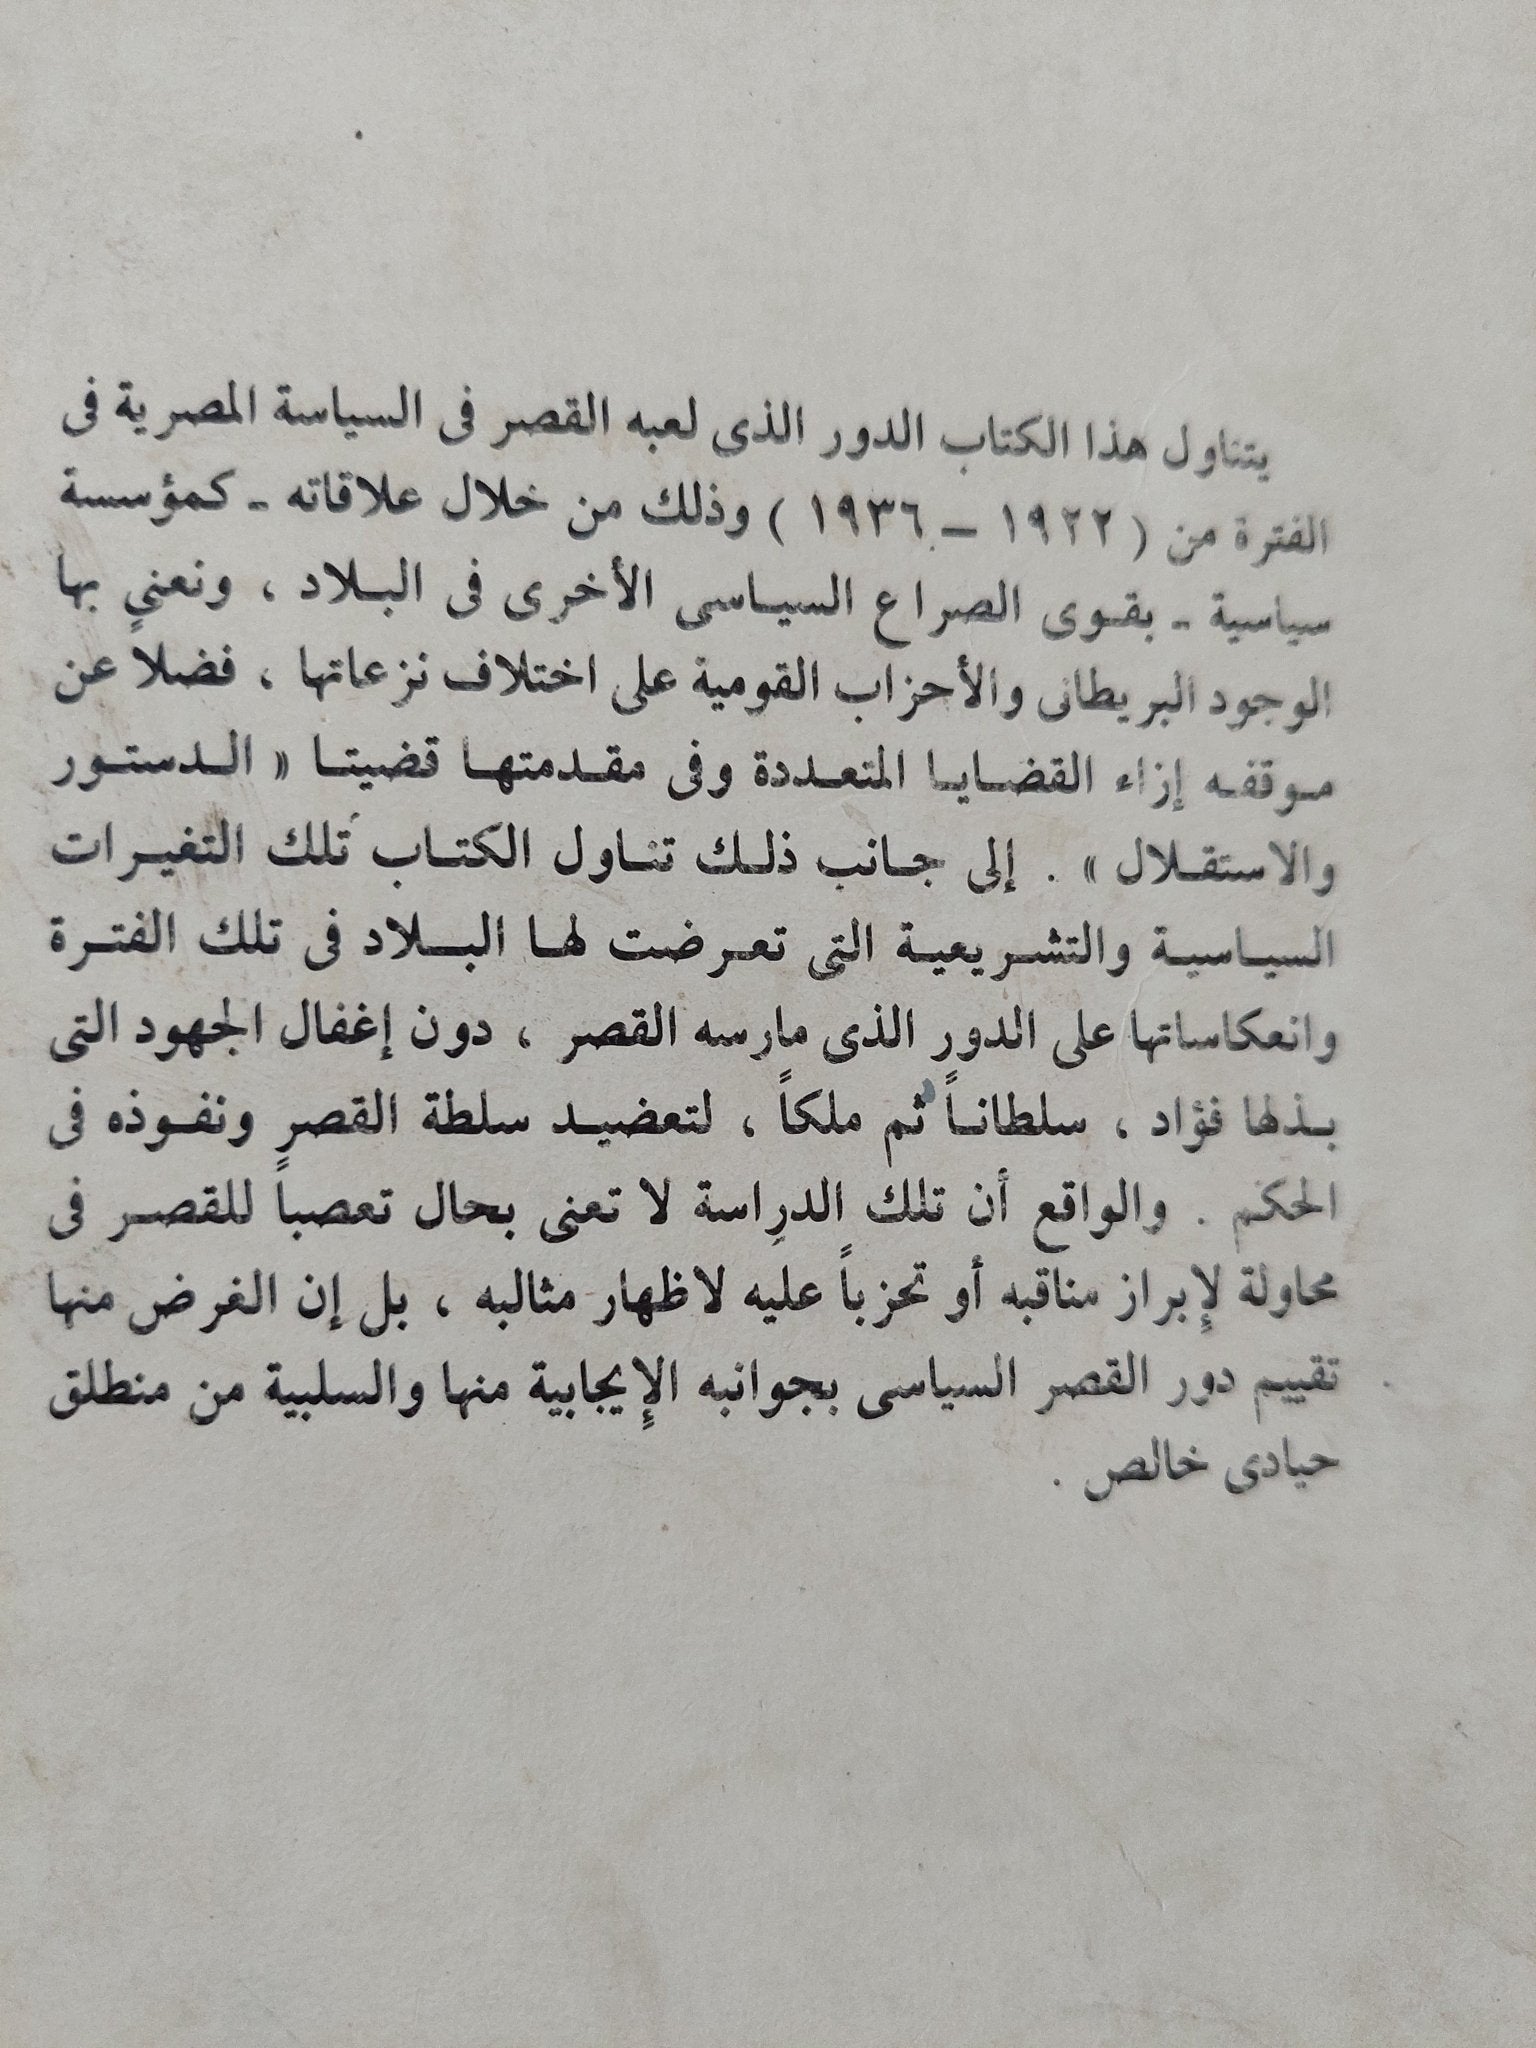 يتناول هذا الكتاب الدور الذى لعبه القصر فى السياسة المصرية فى
الفترة من ( ١٩٢٢ – ١٩٣٦ ) وذلك من خلال علاقاته - كمؤسسة
سياسية - بقوى الصراع السياسى الأخرى فى البلاد ، ونعنى بها
الوجود البريطانى والأحزاب القومية على اختلاف نزعاتها ، فضلاً عن
موقفه إزاء القضايا المتعددة وفى مقدمتها قضيتا « الدستور
والاستقلال » . إلى جانب ذلك تناول الكتاب تلك التغيرات
السياسية والتشريعية التى تعرضت لها البلاد فى تلك الفترة
وانعكاساتها على الدور الذى مارسه القصر ، دون إغفال الجهود التى
بذلها فؤاد ، سلطاناً ثم ملكاً ، لتعضيد سلطة القصر ونفوذه فى
الحكم . والواقع أن تلك الدراسة لا تعنى بحال تعصباً للقصر فى
محاولة لإبراز مناقبه أو تحزباً عليه لاظهار مثالبه ، بل إن الغرض منها
تقييم دور القصر السياسى بجوانبه الإيجابية منها والسلبية من منطلق
حيادى خالص .